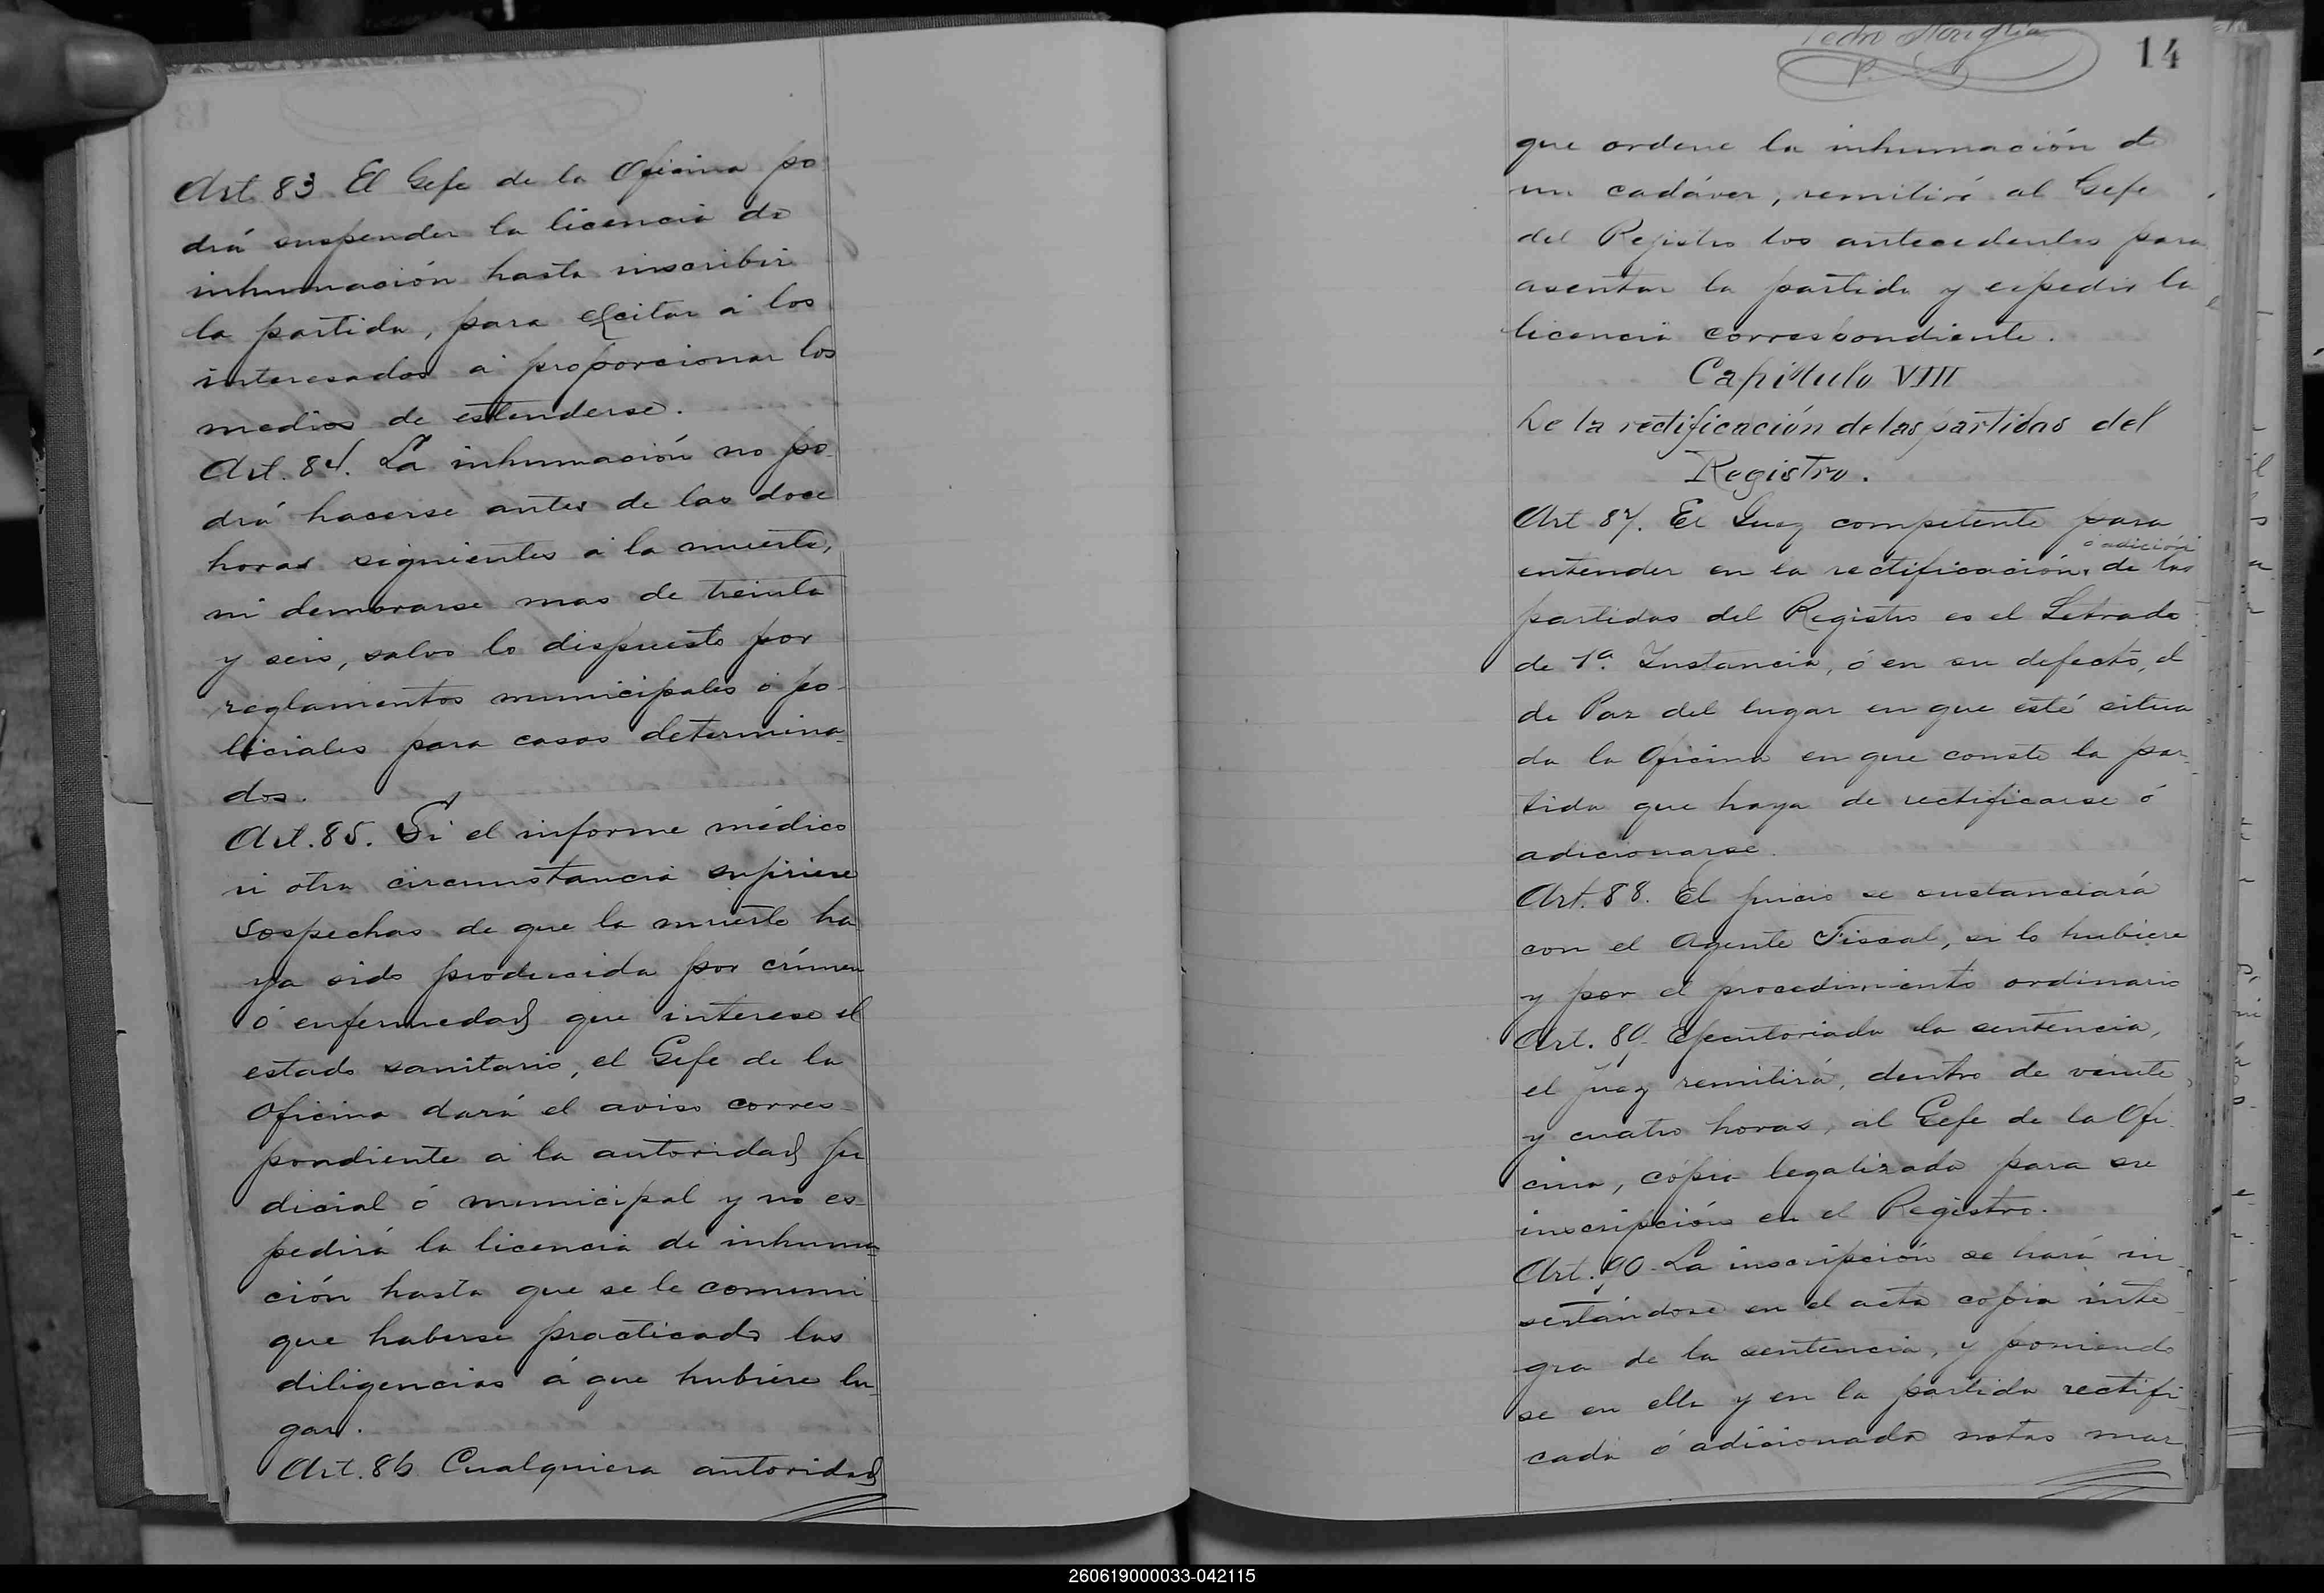 Art. 83 El Gefe de la Oficina po
drá suspender la licencia de
inhumación hasta inscribir
la partida, para escitar á los
interesados á proporcionar los
medios de estenderse.
Art. 84. La inhumación no po-
drá hacerse antes de las doce
horas siguientes á la muerte,
ni demorarse mas de treinta
y seis, salvo lo dispuesto por
reglamentos municipales ó po-
liciales para casos determina-
dos.
Art. 85. Si el informe médico
ú otra circunstancia sujiriese
sospechas de que la muerte ha
ya sido producida por crímen
ó enfermedad que interese el
estado sanitario, el Gefe de la
Oficina dará el aviso corres-
pondiente á la autoridad ju
dicial ó municipal y no es-
pedirá la licencia de inhuma-
ción hasta que se le comuni-
que haberse practicado las
diligencias á que hubiere lu-
gar.
Art. 86 Cualquiera autoridad
14
que ordene la inhumación de
un cadáver, remitirá al Gefe
del Registro los antecedentes para
asentar la partida y espedir la
licencia correspondiente.
Capítulo VIII
De la rectificación de las partidas del
Registro.
Art 87. El Juez competente para
ó adición
entender en la rectificación de las
partidas del Registro es el Letrado
de 1ª. Instancia, ó en su defecto, el
de Paz del lugar en que esté situa
da la Oficina en que conste la par-
tida que haya de rectificarse ó
adicionarse.
Art. 88. El juicio se sustanciará
con el Agente Fiscal, si lo hubiere
y por el procedimiento ordinario
Art. 89. Ejecutoriada la sentencia,
el juez remitirá, dentro de veinte
y cuatro horas, al Gefe de la Ofi-
cina, cópia legalizada para su
inscripción en el Registro.
Art. 90. La inscripción se hará in-
sertándose en el acta copia ínte
gra de la sentencia, y poniendo
se en ella y en la partida rectifi-
cada ó adicionada notas mar
260619000033-042115